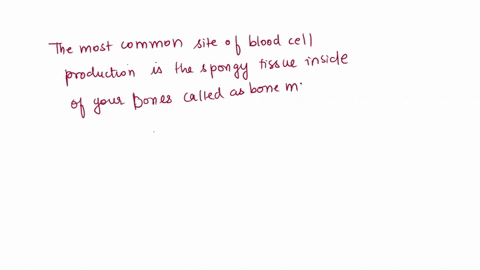 The most common site of blood cell
production is the spongy tissue inside
of your bones called as bone m